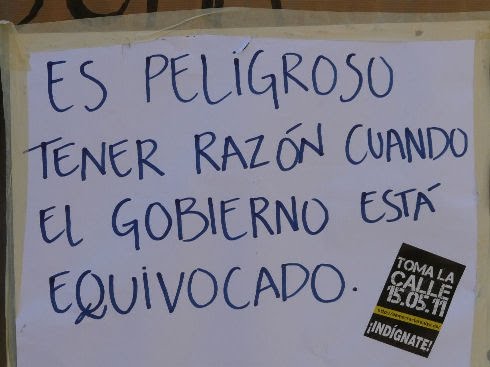 ES PELIGROSO
TENER RAZÓN CUANDO
EL GOBIERNO ESTÁ
EQUIVOCADO.
TOMA LA
CALLE
15.05.11
¡INDÍGNATE!